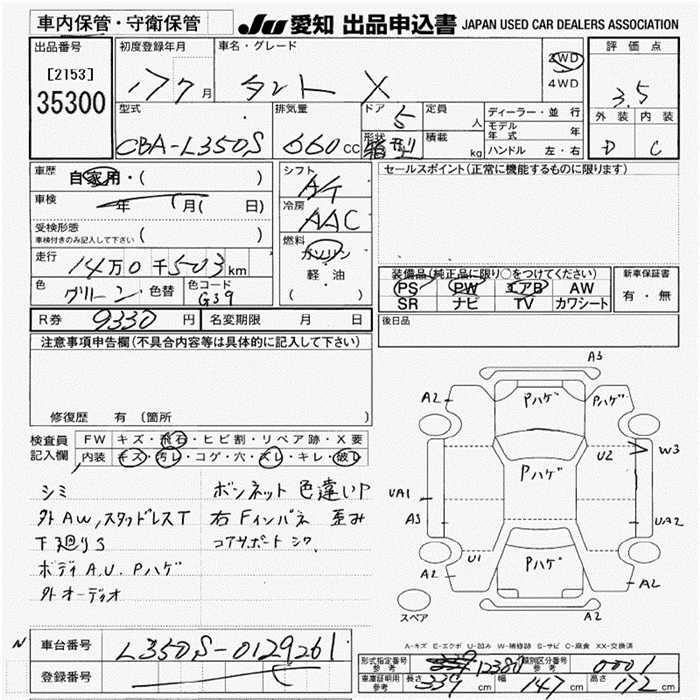 車内保管・守衛保管
JU 愛知 出品申込書 JAPAN USED CAR DEALERS ASSOCIATION
出品番号
[2153]
35300
初度登録年月
17 7月
車名・グレード
タント X
2WD
4WD
評価点
3.5
外装 内装
D C
型式
CBA-L350S
排気量
660cc
ドア
5
形状
定員
人
積載
kg
ディーラー・並行
モデル年式 年
ハンドル 左・右
車歴
自家用・( )
車検
年 月( 日)
受検形態
車検付きのみ記入して下さい ( )
走行
14万0千503km
色
グリーン
色替
色コード
G39
シフト
A/T
冷房
AAC
燃料
ガソリン
軽・油
( )
セールスポイント(正常に機能するものに限ります)
装備品(純正品に限り○をつけてください)
PS PW エアB AW
SR ナビ TV カワシート
新車保証書
有・無
R券 9330円
名変期限 月 日
後日品
注意事項申告欄(不具合内容等は具体的に記入して下さい)
修復歴 有 (箇所 )
検査員記入欄
FW キズ・飛石・ヒビ割・リペア跡・X要
内装 キズ・汚レ・コゲ・穴・スレ・キレ・破レ
シミ
外AW,スタッドレスT
下廻りS
ボディA.U.Pハゲ
外オーディオ
ボンネット色違いP
右Fインパネ 歪み
コアサポートシワ
A3
A2
Pハゲ
Pハゲ
U2
W3
Pハゲ
UA1
A3
UA2
U1
A2
Pハゲ
A2
A2
スペア
A-キズ E-エクボ U-凹み W-補修跡 S-サビ C-腐食 XX-交換済
N
車台番号 L350S-0129261
登録番号
形式指定番号 参考 12380
類別区分番号 参考 0001
車庫証明用 参考 長さ 339cm 幅 147cm 高さ 172cm